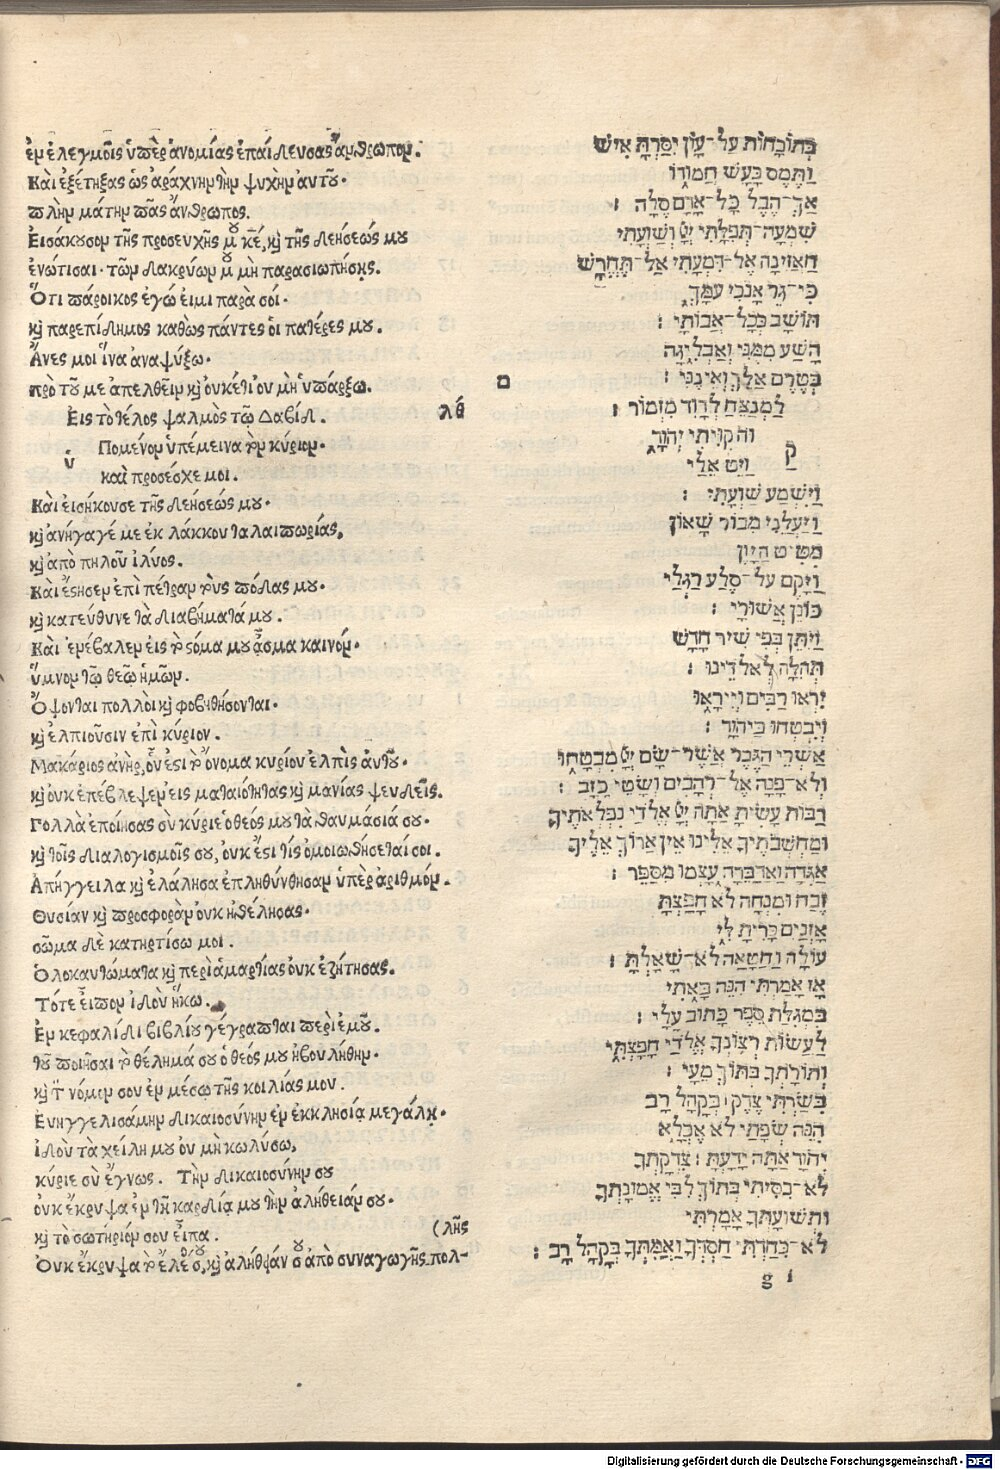 ἐν ἐλεγμοῖς ὑπὲρ ἀνομίας ἐπαίδευσας ἄνθρωπον.
Καὶ ἐξέτηξας ὡς ἀράχνην τὴν ψυχὴν αὐτοῦ.
πλὴν μάτην πᾶς ἄνθρωπος.
Εἰσάκουσον τῆς προσευχῆς μου κε̄, καὶ τῆς δεήσεώς μου
ἐνώτισαι. τῶν δακρύων μου μὴ παρασιωπήσῃς.
Ὅτι πάροικος ἐγώ εἰμι παρὰ σοί.
καὶ παρεπίδημος καθὼς πάντες οἱ πατέρες μου.
Ἄνες μοι ἵνα ἀναψύξω.
πρὸ τοῦ με ἀπελθεῖν καὶ οὐκέτι οὐ μὴ ὑπάρξω.
Εἰς τὸ τέλος ψαλμὸς τῷ Δαβίδ. λθ
Ὑ Πομένων ὑπέμεινα τὸν κύριον.
καὶ προσέσχε μοι.
Καὶ εἰσήκουσε τῆς δεήσεώς μου.
καὶ ἀνήγαγέ με ἐκ λάκκου ταλαιπωρίας,
καὶ ἀπὸ πηλοῦ ἰλύος.
Καὶ ἔστησεν ἐπὶ πέτραν τοὺς πόδας μου.
καὶ κατεύθυνε τὰ διαβήματά μου.
Καὶ ἐνέβαλεν εἰς τὸ στόμα μου ᾆσμα καινόν.
ὕμνον τῷ θεῷ ἡμῶν.
Ὄψονται πολλοὶ καὶ φοβηθήσονται.
καὶ ἐλπιοῦσιν ἐπὶ κύριον.
Μακάριος ἀνὴρ, οὗ ἐστι τὸ ὄνομα κυρίου ἐλπὶς αὐτοῦ.
καὶ οὐκ ἐπέβλεψεν εἰς ματαιότητας καὶ μανίας ψευδεῖς.
Πολλὰ ἐποίησας σὺ κύριε ὁ θεός μου τὰ θαυμάσιά σου.
καὶ τοῖς διαλογισμοῖς σου, οὐκ ἔστι τίς ὁμοιωθήσεταί σοι.
Ἀπήγγειλα καὶ ἐλάλησα ἐπληθύνθησαν ὑπὲρ ἀριθμόν.
Θυσίαν καὶ προσφορὰν οὐκ ἠθέλησας.
σῶμα δὲ κατηρτίσω μοι.
Ὁλοκαυτώματα καὶ περὶ ἁμαρτίας οὐκ ἐζήτησας.
Τότε εἶπον ἰδοὺ ἥκω.
Ἐν κεφαλίδι βιβλίου γέγραπται περὶ ἐμοῦ.
τοῦ ποιῆσαι τὸ θέλημά σου ὁ θεός μου ἠβουλήθην.
καὶ τὸν νόμον σου ἐν μέσῳ τῆς κοιλίας μου.
Εὐηγγελισάμην δικαιοσύνην ἐν ἐκκλησίᾳ μεγάλῃ.
ἰδοὺ τὰ χείλη μου οὐ μὴ κωλύσω,
κύριε σὺ ἔγνως. Τὴν δικαιοσύνην σου
οὐκ ἔκρυψα ἐν τῇ καρδίᾳ μου τὴν ἀλήθειάν σου.
καὶ τὸ σωτήριόν σου εἶπα. (λῆς
Οὐκ ἔκρυψα τὸ ἔλεός σου, καὶ ἀλήθειάν σου ἀπὸ συναγωγῆς πολ-
בְּתוֹכָחוֹת עַל־עָוֺן יִסַּרְתָּ אִישׁ
וַתֶּמֶס כָּעָשׁ חֲמוּדוֹ
אַךְ־הֶבֶל כָּל־אָדָם סֶלָה :
שִׁמְעָה־תְפִלָּתִי יְיָ וְשַׁוְעָתִי
הַאֲזִינָה אֶל־דִּמְעָתִי אַל־תֶּחֱרַשׁ
כִּי־גֵר אָנֹכִי עִמָּךְ
תּוֹשָׁב כְּכָל־אֲבוֹתָי :
הָשַׁע מִמֶּנִּי וְאַבְלִיגָה
בְּטֶרֶם אֵלֵךְ וְאֵינֶנִּי :
מ לַמְנַצֵּחַ לְדָוִד מִזְמוֹר :
ק וֹה קִוִּיתִי יְהוָֹה
וַיֵּט אֵלַי
וַיִּשְׁמַע שַׁוְעָתִי :
וַיַּעֲלֵנִי מִבּוֹר שָׁאוֹן
מִטִּיט הַיָּוֵן
וַיָּקֶם עַל־סֶלַע רַגְלַי
כּוֹנֵן אֲשׁוּרָי :
וַיִּתֵּן בְּפִי שִׁיר חָדָשׁ
תְּהִלָּה לֵאלֹדֵינוּ :
יִרְאוּ רַבִּים וְיִירָאוּ
וְיִבְטְחוּ בַּיהוָֹה :
אַשְׁרֵי הַגֶּבֶר אֲשֶׁר־שָׂם יְיָ מִבְטַחוֹ
וְלֹא־פָנָה אֶל־רְהָבִים וְשָׂטֵי כָזָב :
רַבּוֹת עָשִׂיתָ אַתָּה יְיָ אֱלֹדַי נִפְלְאֹתֶיךָ
וּמַחְשְׁבֹתֶיךָ אֵלֵינוּ אֵין אֲרוֹךְ אֵלֶיךָ
אַגִּידָה וַאֲדַבֵּרָה עָצְמוּ מִסַּפֵּר :
זֶבַח וּמִנְחָה לֹא חָפַצְתָּ
אָזְנַיִם כָּרִיתָ לִּי
עוֹלָה וַחֲטָאָה לֹא־שָׁאָלְתָּ :
אָז אָמַרְתִּי הִנֵּה בָאתִי
בִּמְגִלַּת סֵפֶר כָּתוּב עָלָי :
לַעֲשׂוֹת רְצוֹנְךָ אֱלֹדַי חָפָצְתִּי
וְתוֹרָתְךָ בְּתוֹךְ מֵעָי :
בִּשַּׂרְתִּי צֶדֶק בְּקָהָל רָב
הִנֵּה שְׂפָתַי לֹא אֶכְלָא
יְהוָֹה אַתָּה יָדָעְתָּ : צִדְקָתְךָ
לֹא־כִסִּיתִי בְּתוֹךְ לִבִּי אֱמוּנָתְךָ
וּתְשׁוּעָתְךָ אָמָרְתִּי
לֹא־כִחַדְתִּי חַסְדְּךָ וַאֲמִתְּךָ בְּקָהָל רָב :
g i
Digitalisierung gefördert durch die Deutsche Forschungsgemeinschaft - DFG